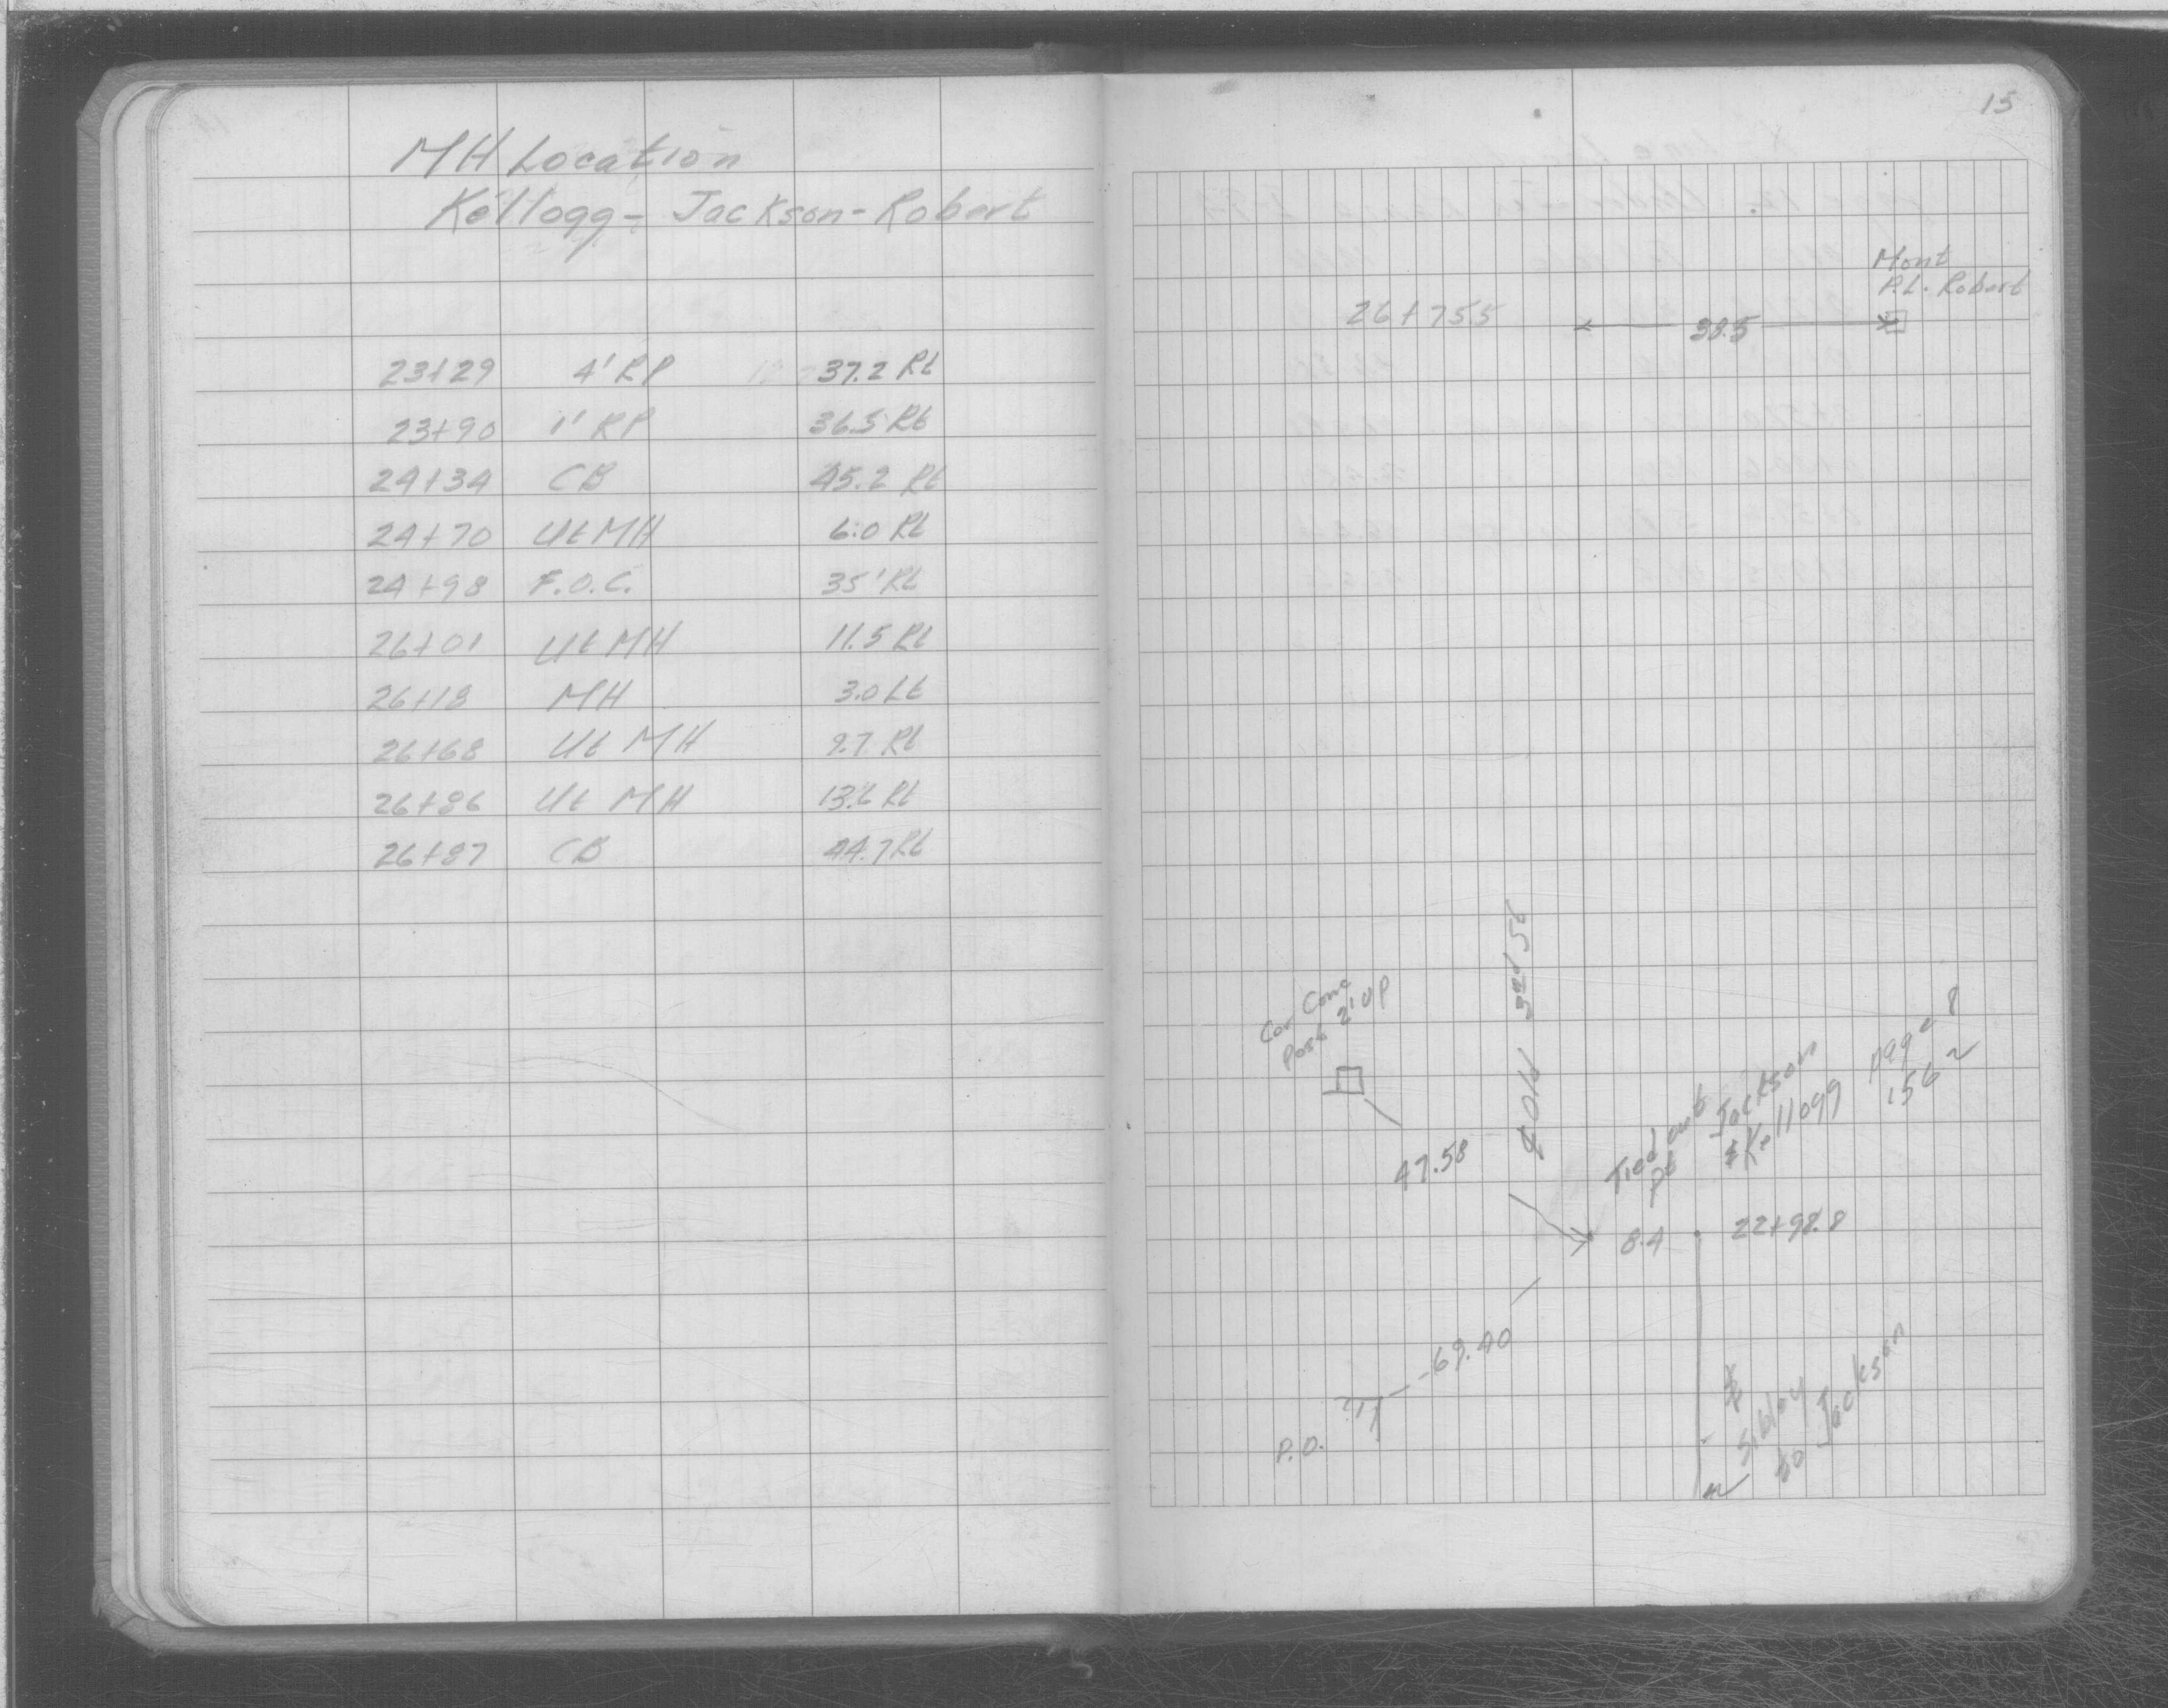 MH Location
Kellogg - Jackson - Robert
23+29 4' RP 37.2 Rt
23+90 1' RP 36.5 Rt
24+34 CB 45.2 Rt
24+70 Ut MH 6.0 Rt
24+98 F.O.C. 35' Rt
26+01 Ut MH 11.5 Rt
26+18 MH 3.0 Lt
26+68 Ut MH 9.7 Rt
26+86 Ut MH 13.6 Rt
26+87 CB 44.7 Rt
15
Mont
P.L. Robert
26+75.5 38.5
Cor Conc
Post 2' up
47.58
Tied out Jackson
Pt & Kellogg
page 8
1562
8.4 22+98.8
69.40
P.O.
Sibley
to Jackson